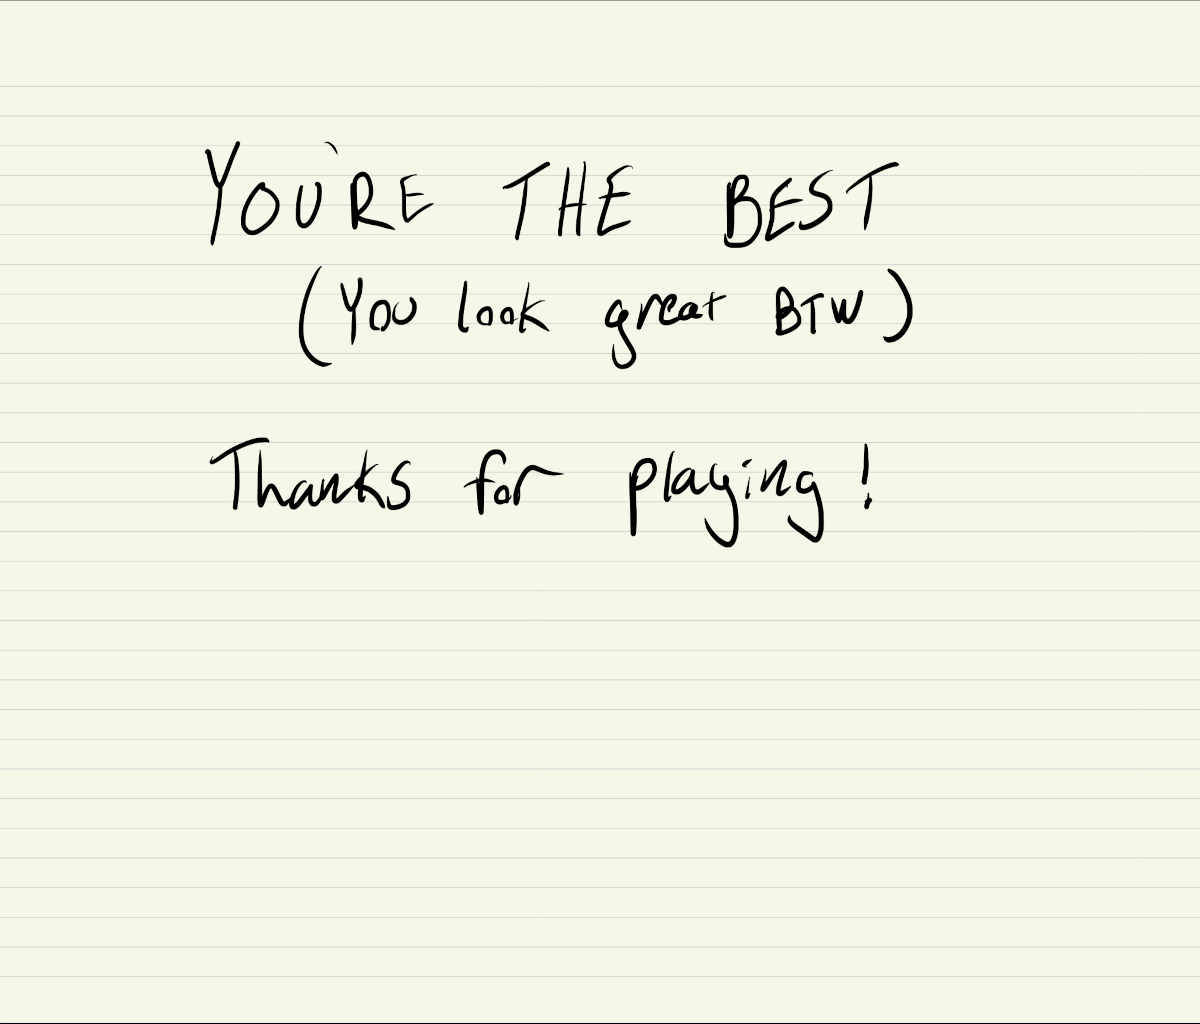 YOU'RE THE BEST
(You look great BTW)
Thanks for playing!